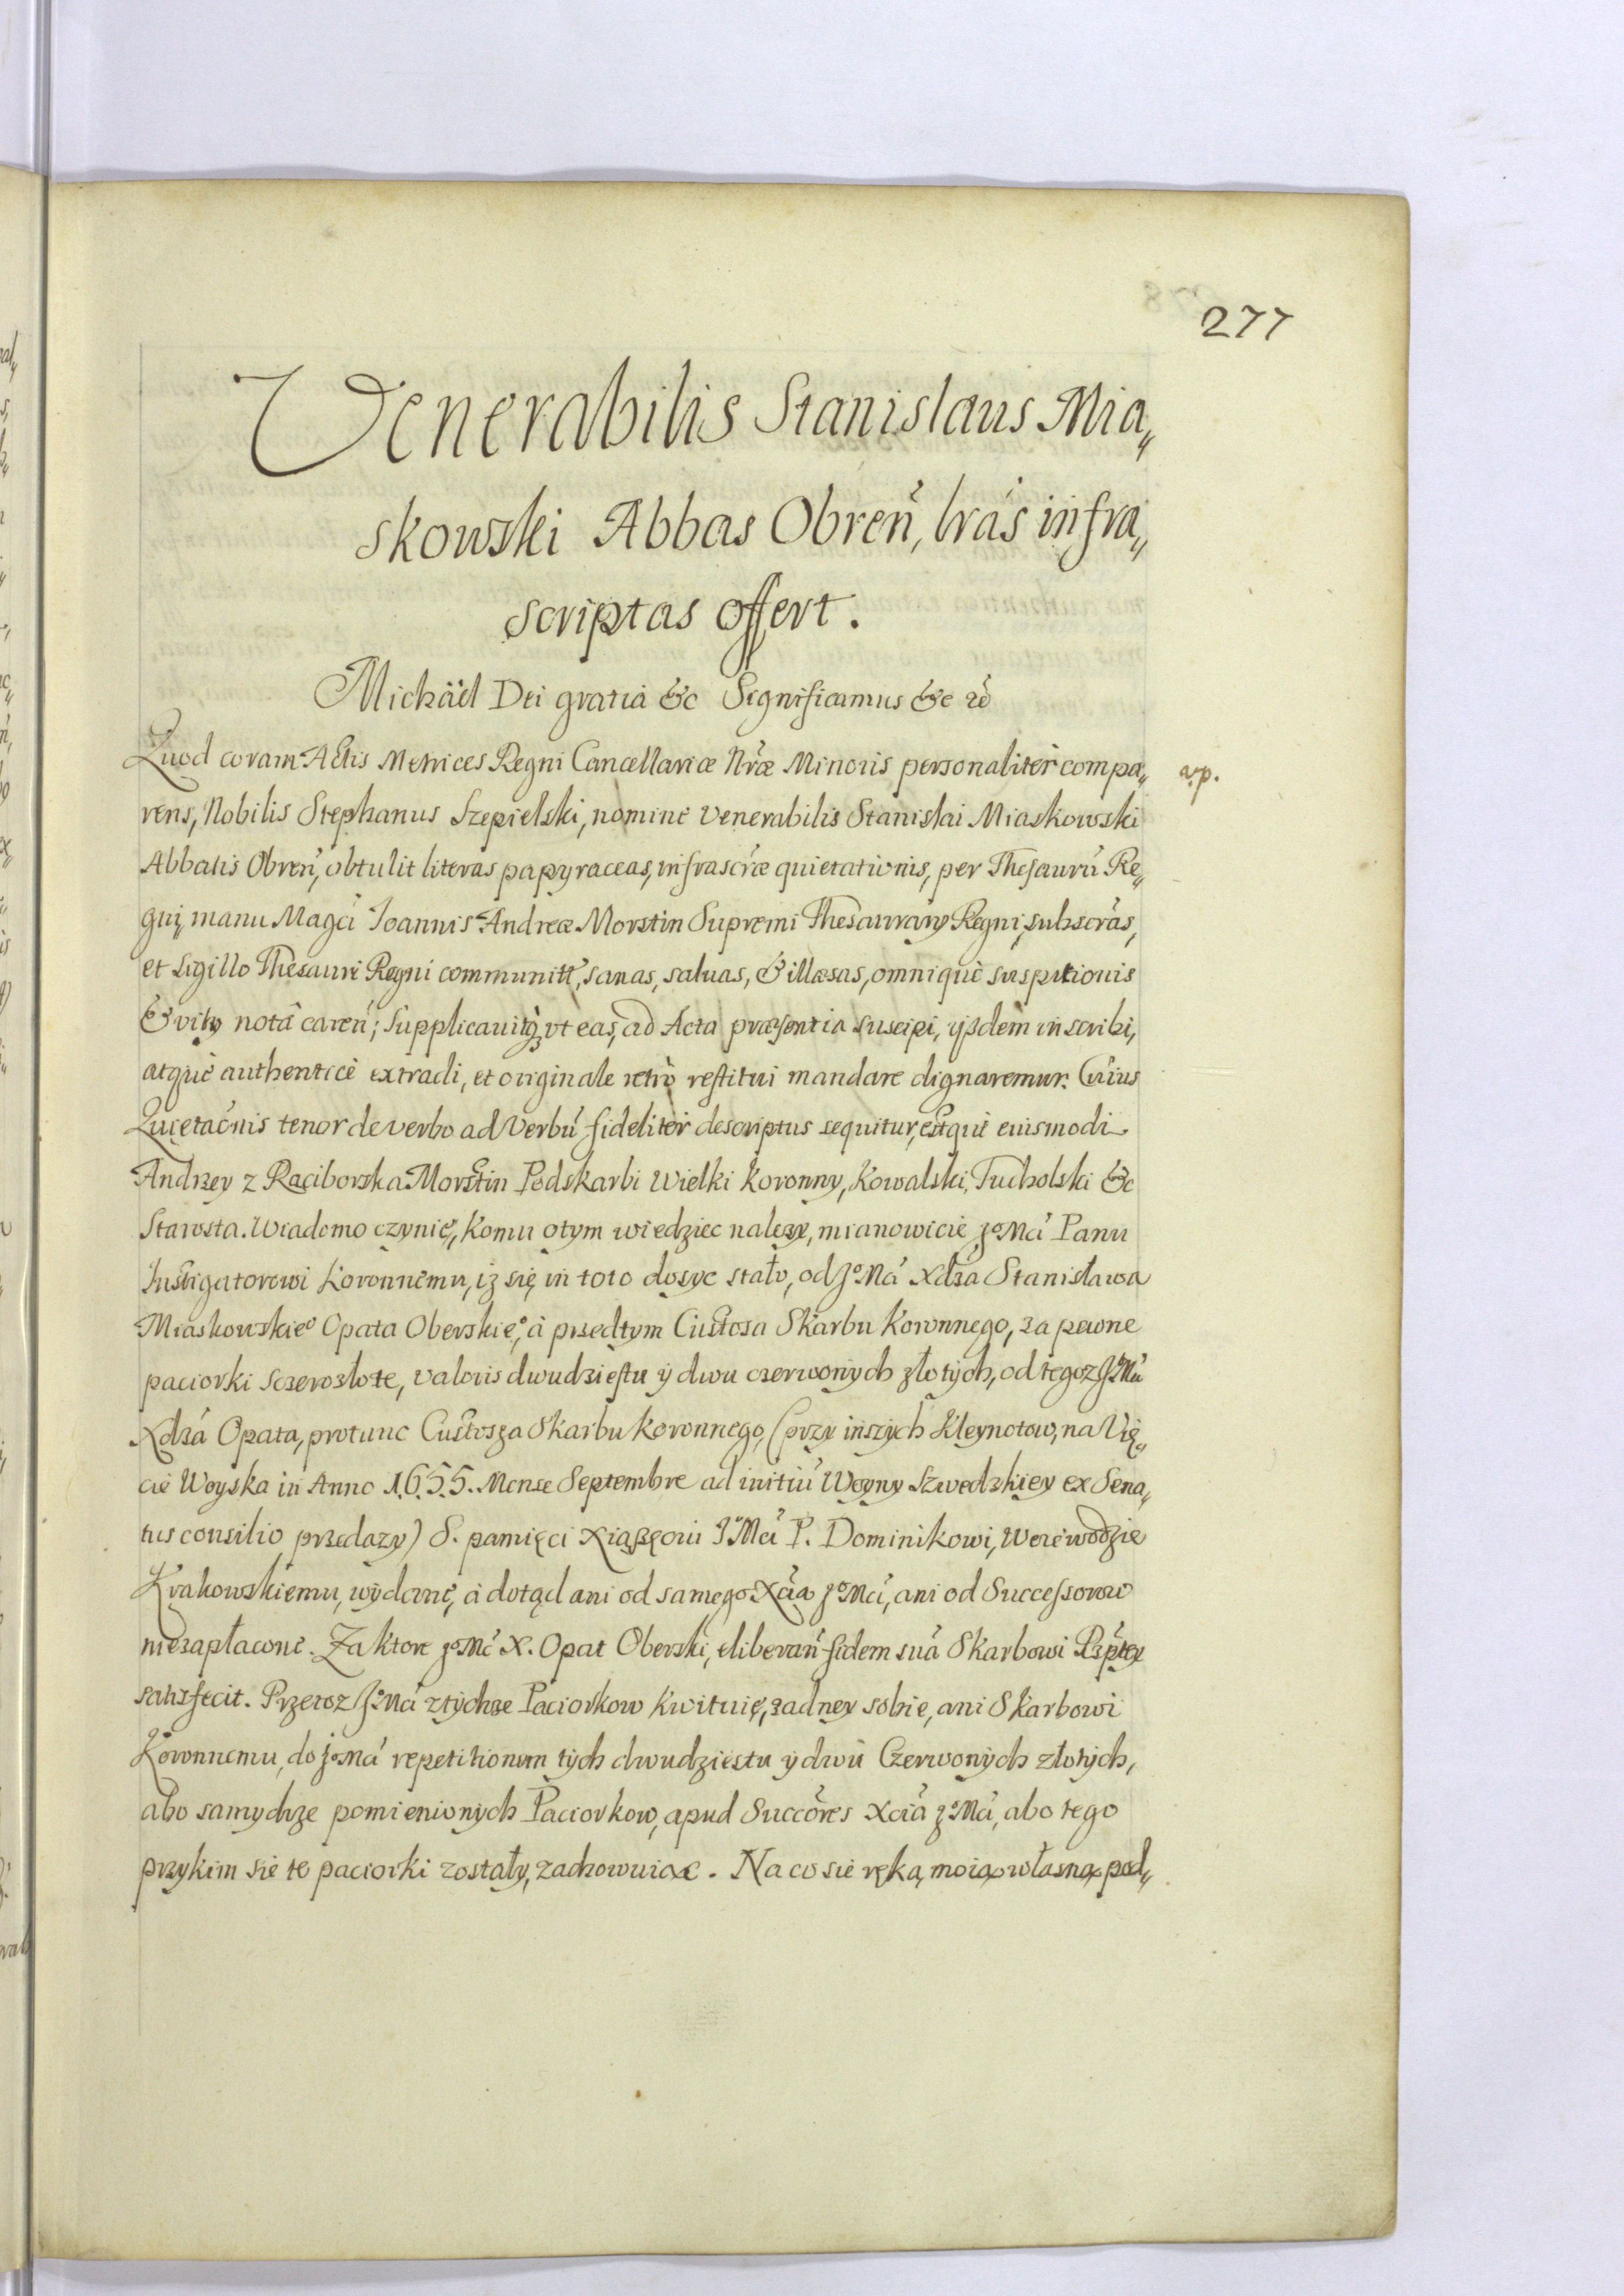 277
Venerabilis Stanislaus Mia„
skowski Abbas Obreń, lrás infra„
scriptas offert.
Michäel Dei gratiá &c Significamus &c
Quod coram Actis Metrices Regni Cancellariæ Nr̃æ Minoris personalitèr compa„
a.p.
rens, Nobilis Stephanus Szepielski, nomine Venerabilis Stanislai Miaskowski
Abbatis Obreń, obtulit literas papyraceas, infrascr̃æ quietationis, per Thesaurū Re„
gni, manu Magci Ioannis Andreæ Morstin Supremi Thesaurarÿ Regni, subscrãs,
et sigillo Thesauri Regni communitt, sanas, saluas, & illæsas, omniquè suspitionis
& vitÿ notâ careñ; Supplicavitq₃ vt eas, ad Acta præsentia suscipi, ijsdem inscribi,
atquè authenticè extradi, et originale retrò restitui mandare dignaremur. Cuius
Quietac̃nis tenor de verbo ad Verbū fidelitèr descriptus sequitur, estquè eiusmodi
Andrzey z Raciborska Morstin Podskarbi Wielki Koronny, Kowalski, Tucholski &c
Starosta. Wiadomo czynię, komu otym wiedziec nalezy, mianowicie Jº Mci Panu
Instigatorowi Koronnemu, iz się in toto dosyc stało, od Jº Mci Xdza Stanisława
Miaskowskieº Opata Oberskieº, á przedtym Custosa Skarbu Koronnego, za pewne
paciorki sczerozłote, valoris dwudziestu ÿ dwu czerwonych złotych, od tegoz Jº Mci
Xdzá Opata, protunc Custosza Skarbu Koronnego, (przy inszych Kleynotow, na Vię„
cie Woyska in Anno 1655. Mense Septembre ad initiū Woyny Szwedzkiey ex Sena„
tus consilio przedazy) S. pamięci Xiążęciu Jº Mci P. Dominikowi, Woiewodzie
Krakowskiemu, wydane, á dotąd ani od samego Xcia Jº Mci, ani od Successorow
niezapłacone. Zaktore Jº Mć X. Opat Oberski, eliberań fidem suā Skarbowi Rzptey
satisfecit. Przetoz Jº Mci ztychze Paciorkow kwituię, zadney sobie, ani Skarbowi
Koronnemu, do Jº Mci repetitionem tych dwudziestu ÿ dwu Czerwonych złotych,
abo samychze pomienionych Paciorkow, apud Succõres Xcia Jº Mci, abo tego
przykim sie te paciorki zostały, zachowuiąc. Na co sie ręką moią własną pod„